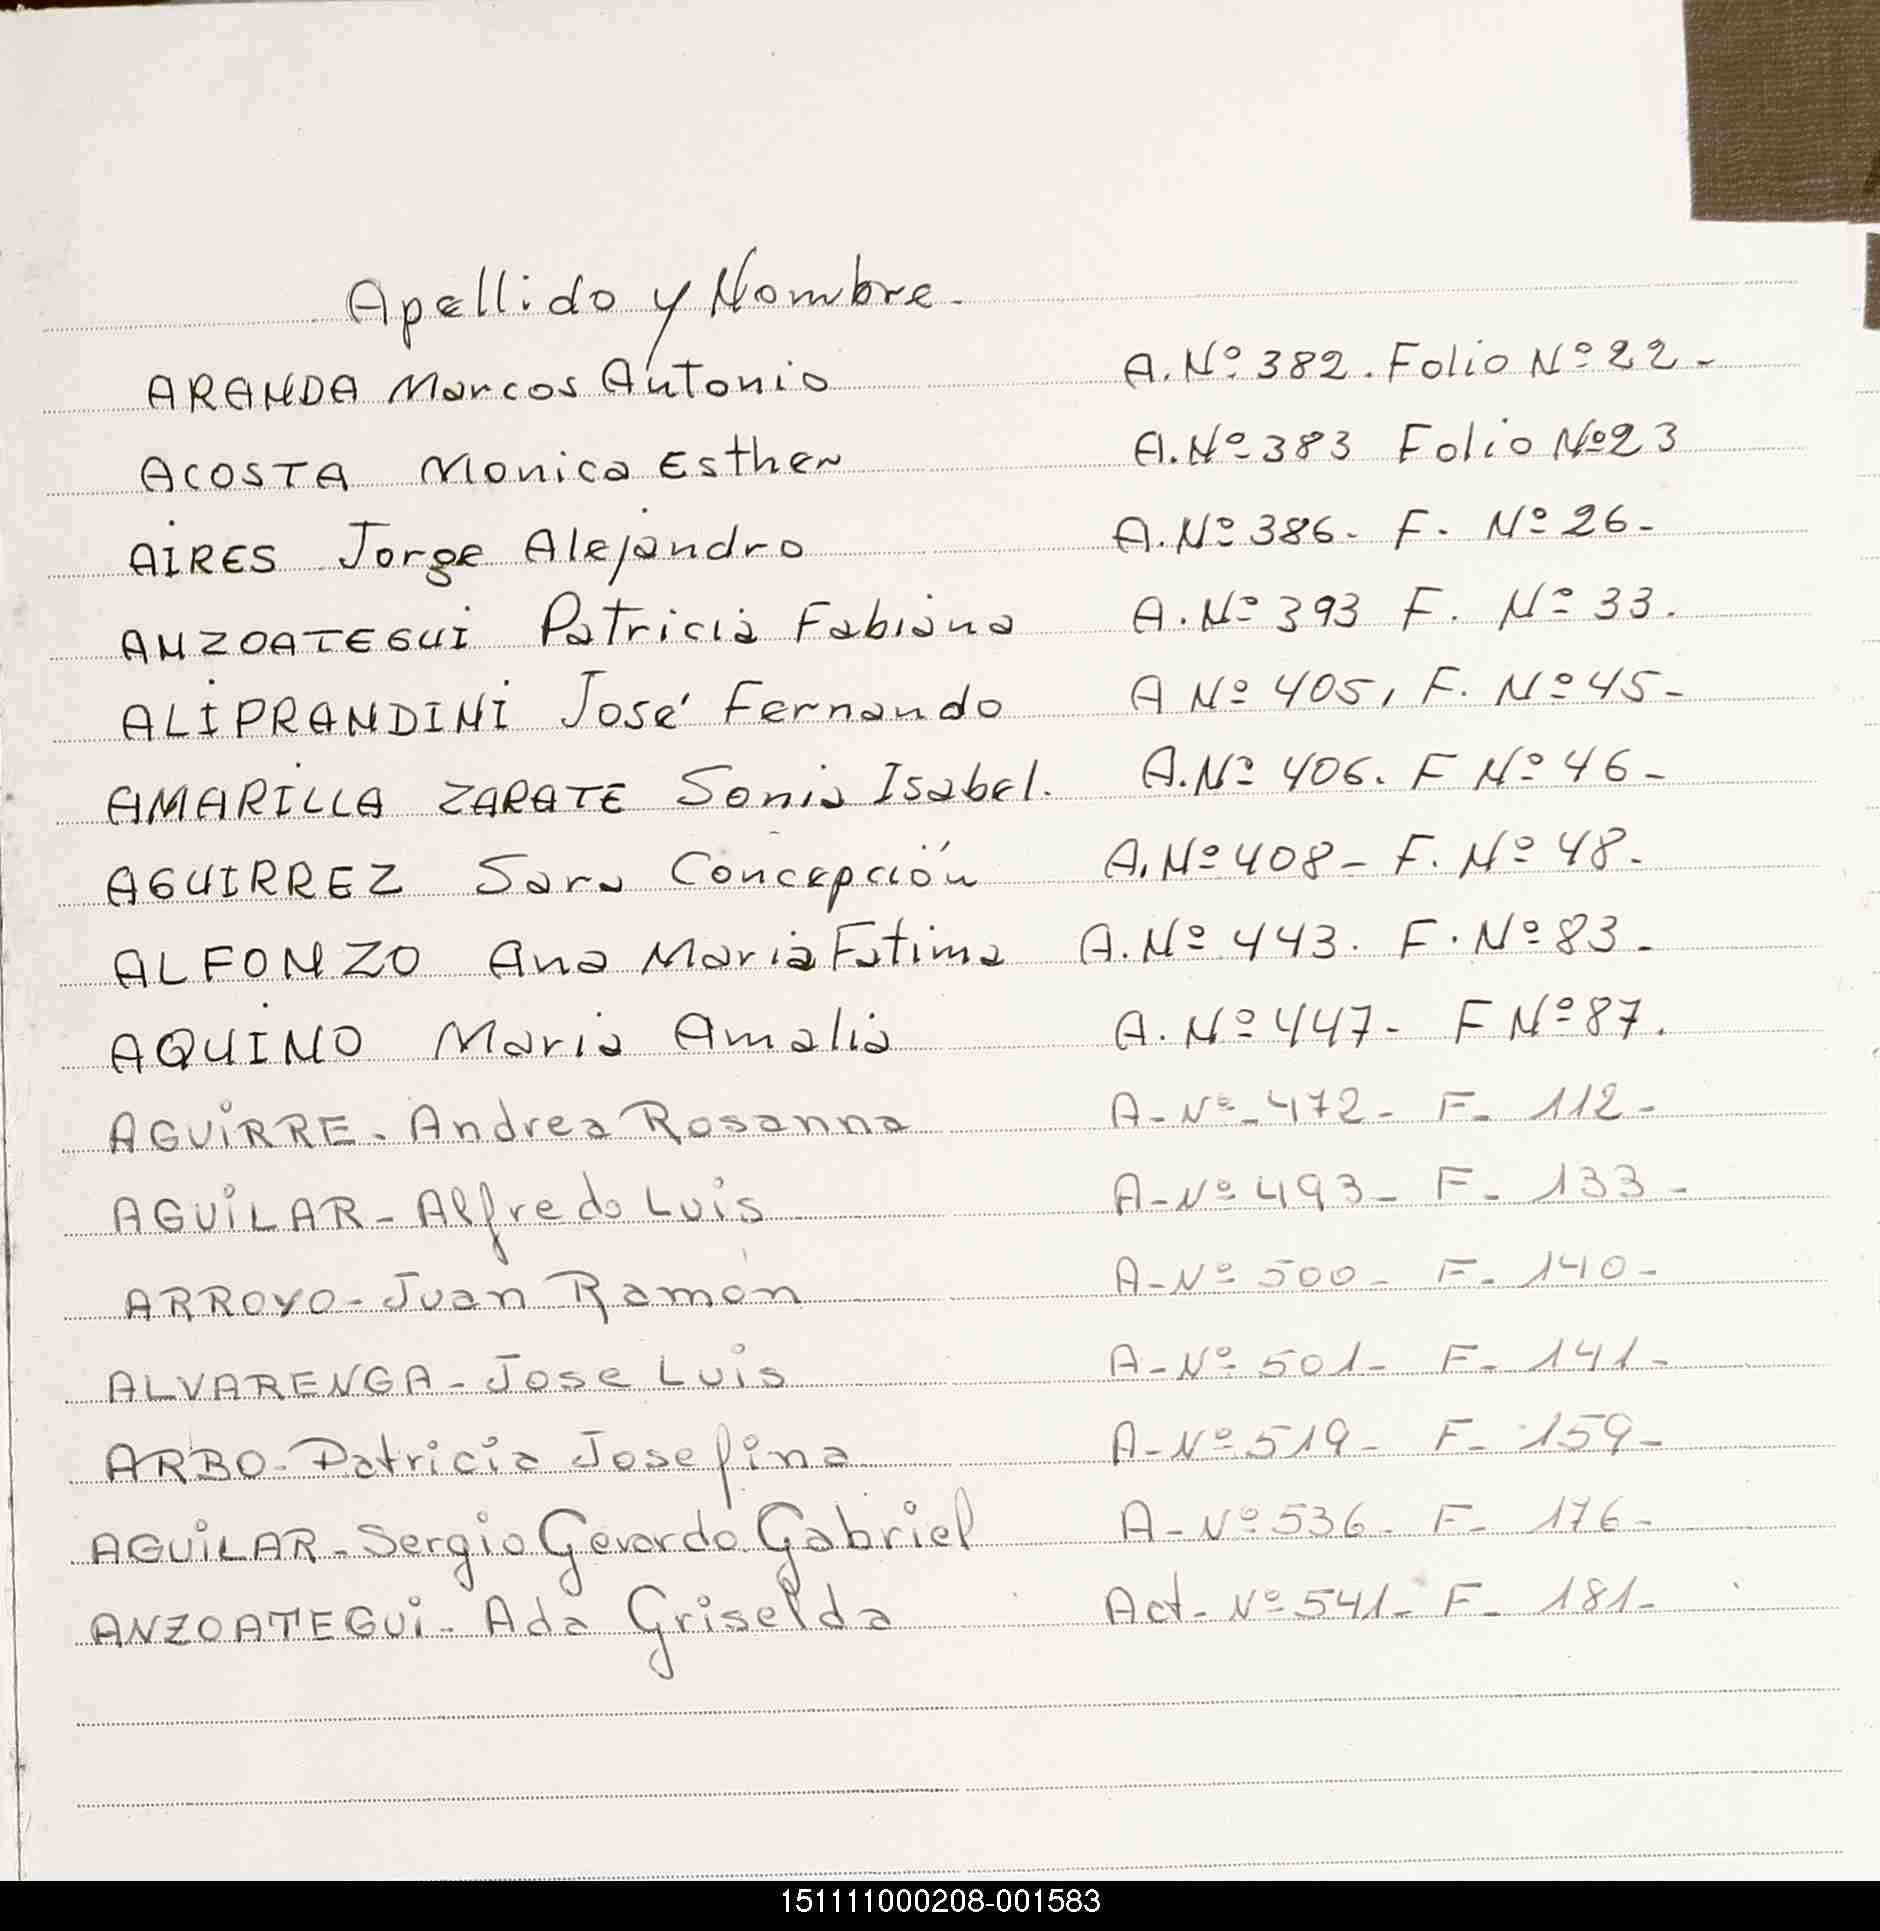 Apellido y Nombre.
ARANDA Marcos Antonio A. Nº 382. Folio Nº 22-
ACOSTA Monica Esther A. Nº 383 Folio Nº 23
AIRES Jorge Alejandro A. Nº 386- F. Nº 26-
ANZOATEGUI Patricia Fabiana A. Nº 393 F. Nº 33.
ALIPRANDINI José Fernando A Nº 405, F. Nº 45-
AMARILLA ZARATE Sonia Isabel. A. Nº 406. F Nº 46-
AGUIRREZ Sara Concepción A. Nº 408- F. Nº 48-
ALFONZO Ana Maria Fatima A. Nº 443. F. Nº 83-
AQUINO Maria Amalia A. Nº 447- F Nº 87.
AGUiRRE- Andrea Rosanna A- Nº- 472- F- 112-
AGUiLAR- Alfredo Luis A- Nº 493- F- 133-
ARROYO- Juan Ramón A- Nº 500- F- 140-
ALVARENGA- Jose Luis A- Nº 501- F- 141-
ARBO- Patricia Josefina A- Nº 519- F- 159-
AGUiLAR- Sergio Gerardo Gabriel A- Nº 536- F- 176-
ANZOATEGUi- Ada Griselda Act- Nº 541- F- 181-
151111000208-001583